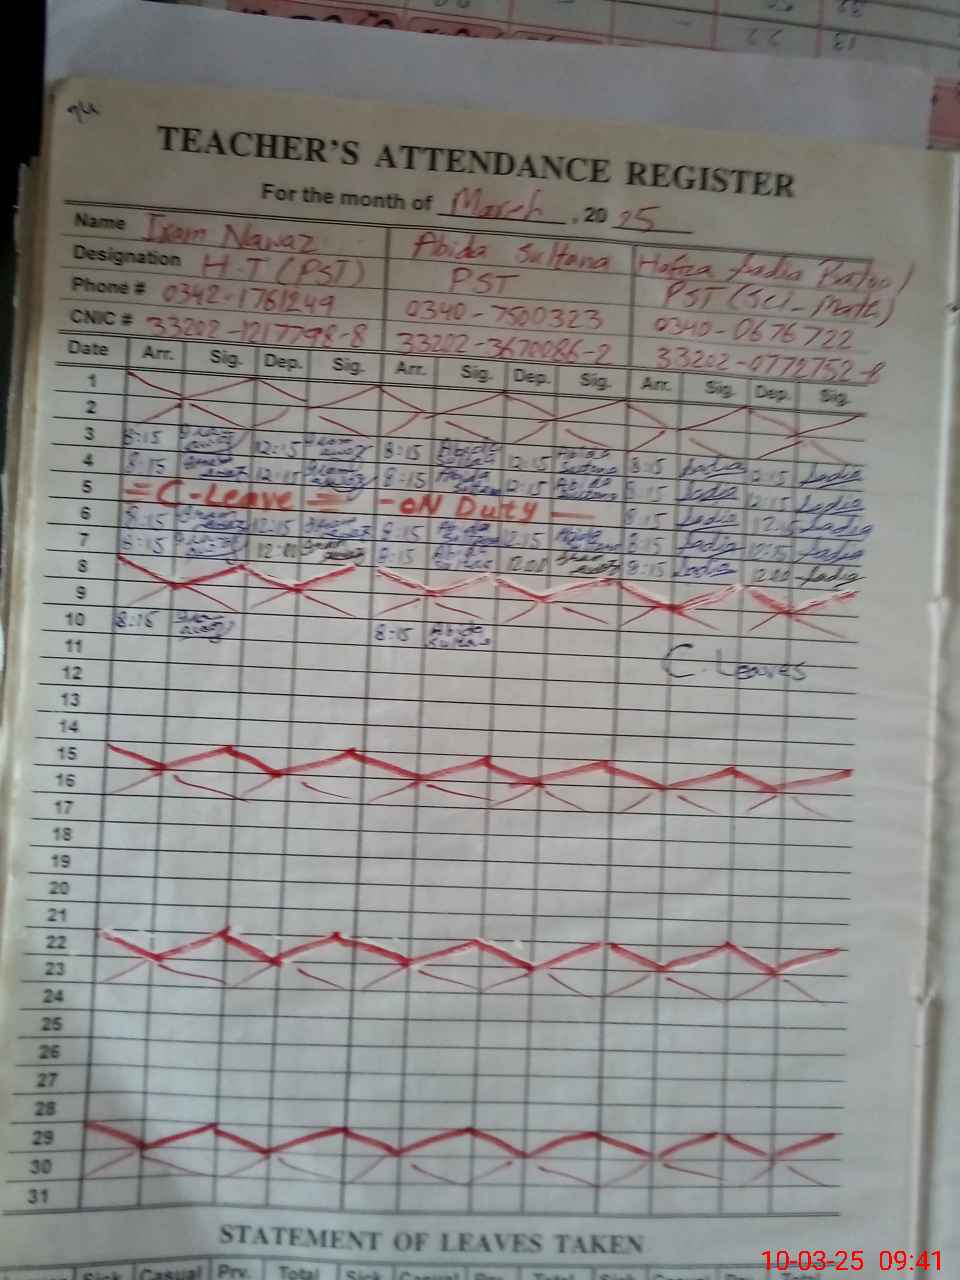 TEACHER'S ATTENDANCE REGISTER
For the month of March, 2025
Name Iram Nawaz Abida Sultana Hafza Sadia
Designation H.T (PST) PST PST (Sci-Math)
Phone # 0342-1761249 0340-7500323 0340-0676722
CNIC # 33202-1217798-8 33202-3670086-2 33202-0772752-8
Date Arr. Sig. Dep. Sig. Arr. Sig. Dep. Sig. Arr. Sig. Dep. Sig.
1
2
3 8:15 12:15 8:15 Abida Sultana 12:15 Abida Sultana 8:15 Sadia 12:15 Sadia
4 8:15 12:15 8:15 Abida Sultana 12:15 Abida Sultana 8:15 Sadia 12:15 Sadia
5 = C-Leave = - ON Duty - 8:15 Sadia 12:15 Sadia
6 8:15 12:15 8:15 Abida 12:15 Abida 8:15 Sadia 12:15 Sadia
7 8:15 12:00 8:15 Abida Sultana 12:00 8:15 Sadia 12:00 Sadia
8
9
10 8:15 8:15 Abida Sultana C. Leaves
11
12
13
14
15
16
17
18
19
20
21
22
23
24
25
26
27
28
29
30
31
STATEMENT OF LEAVES TAKEN
Sick Casual Prv. Total Sick Casual Prv. Total
10-03-25 09:41